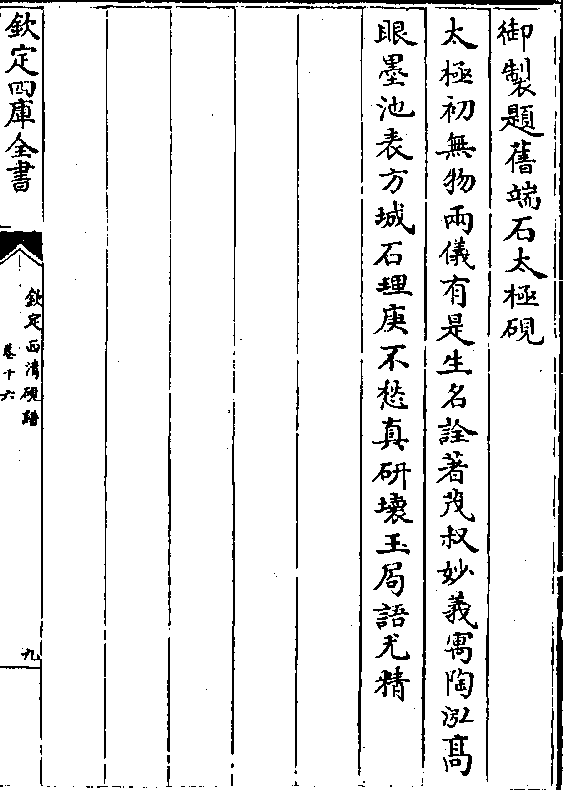 御製題舊端石太極硯
太極初無物兩儀有是生名詮著茂叔妙義寓陶泓高
眼墨池表方城石理庚不愁真研壞玉局語尤精
欽定四庫全書
欽定西清硯譜
卷十六
九